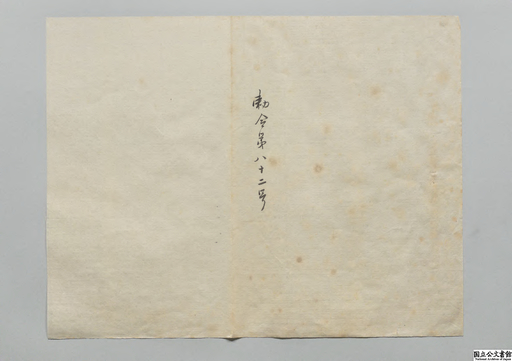 勅令第八十二号
国立公文書館
National Archives of Japan